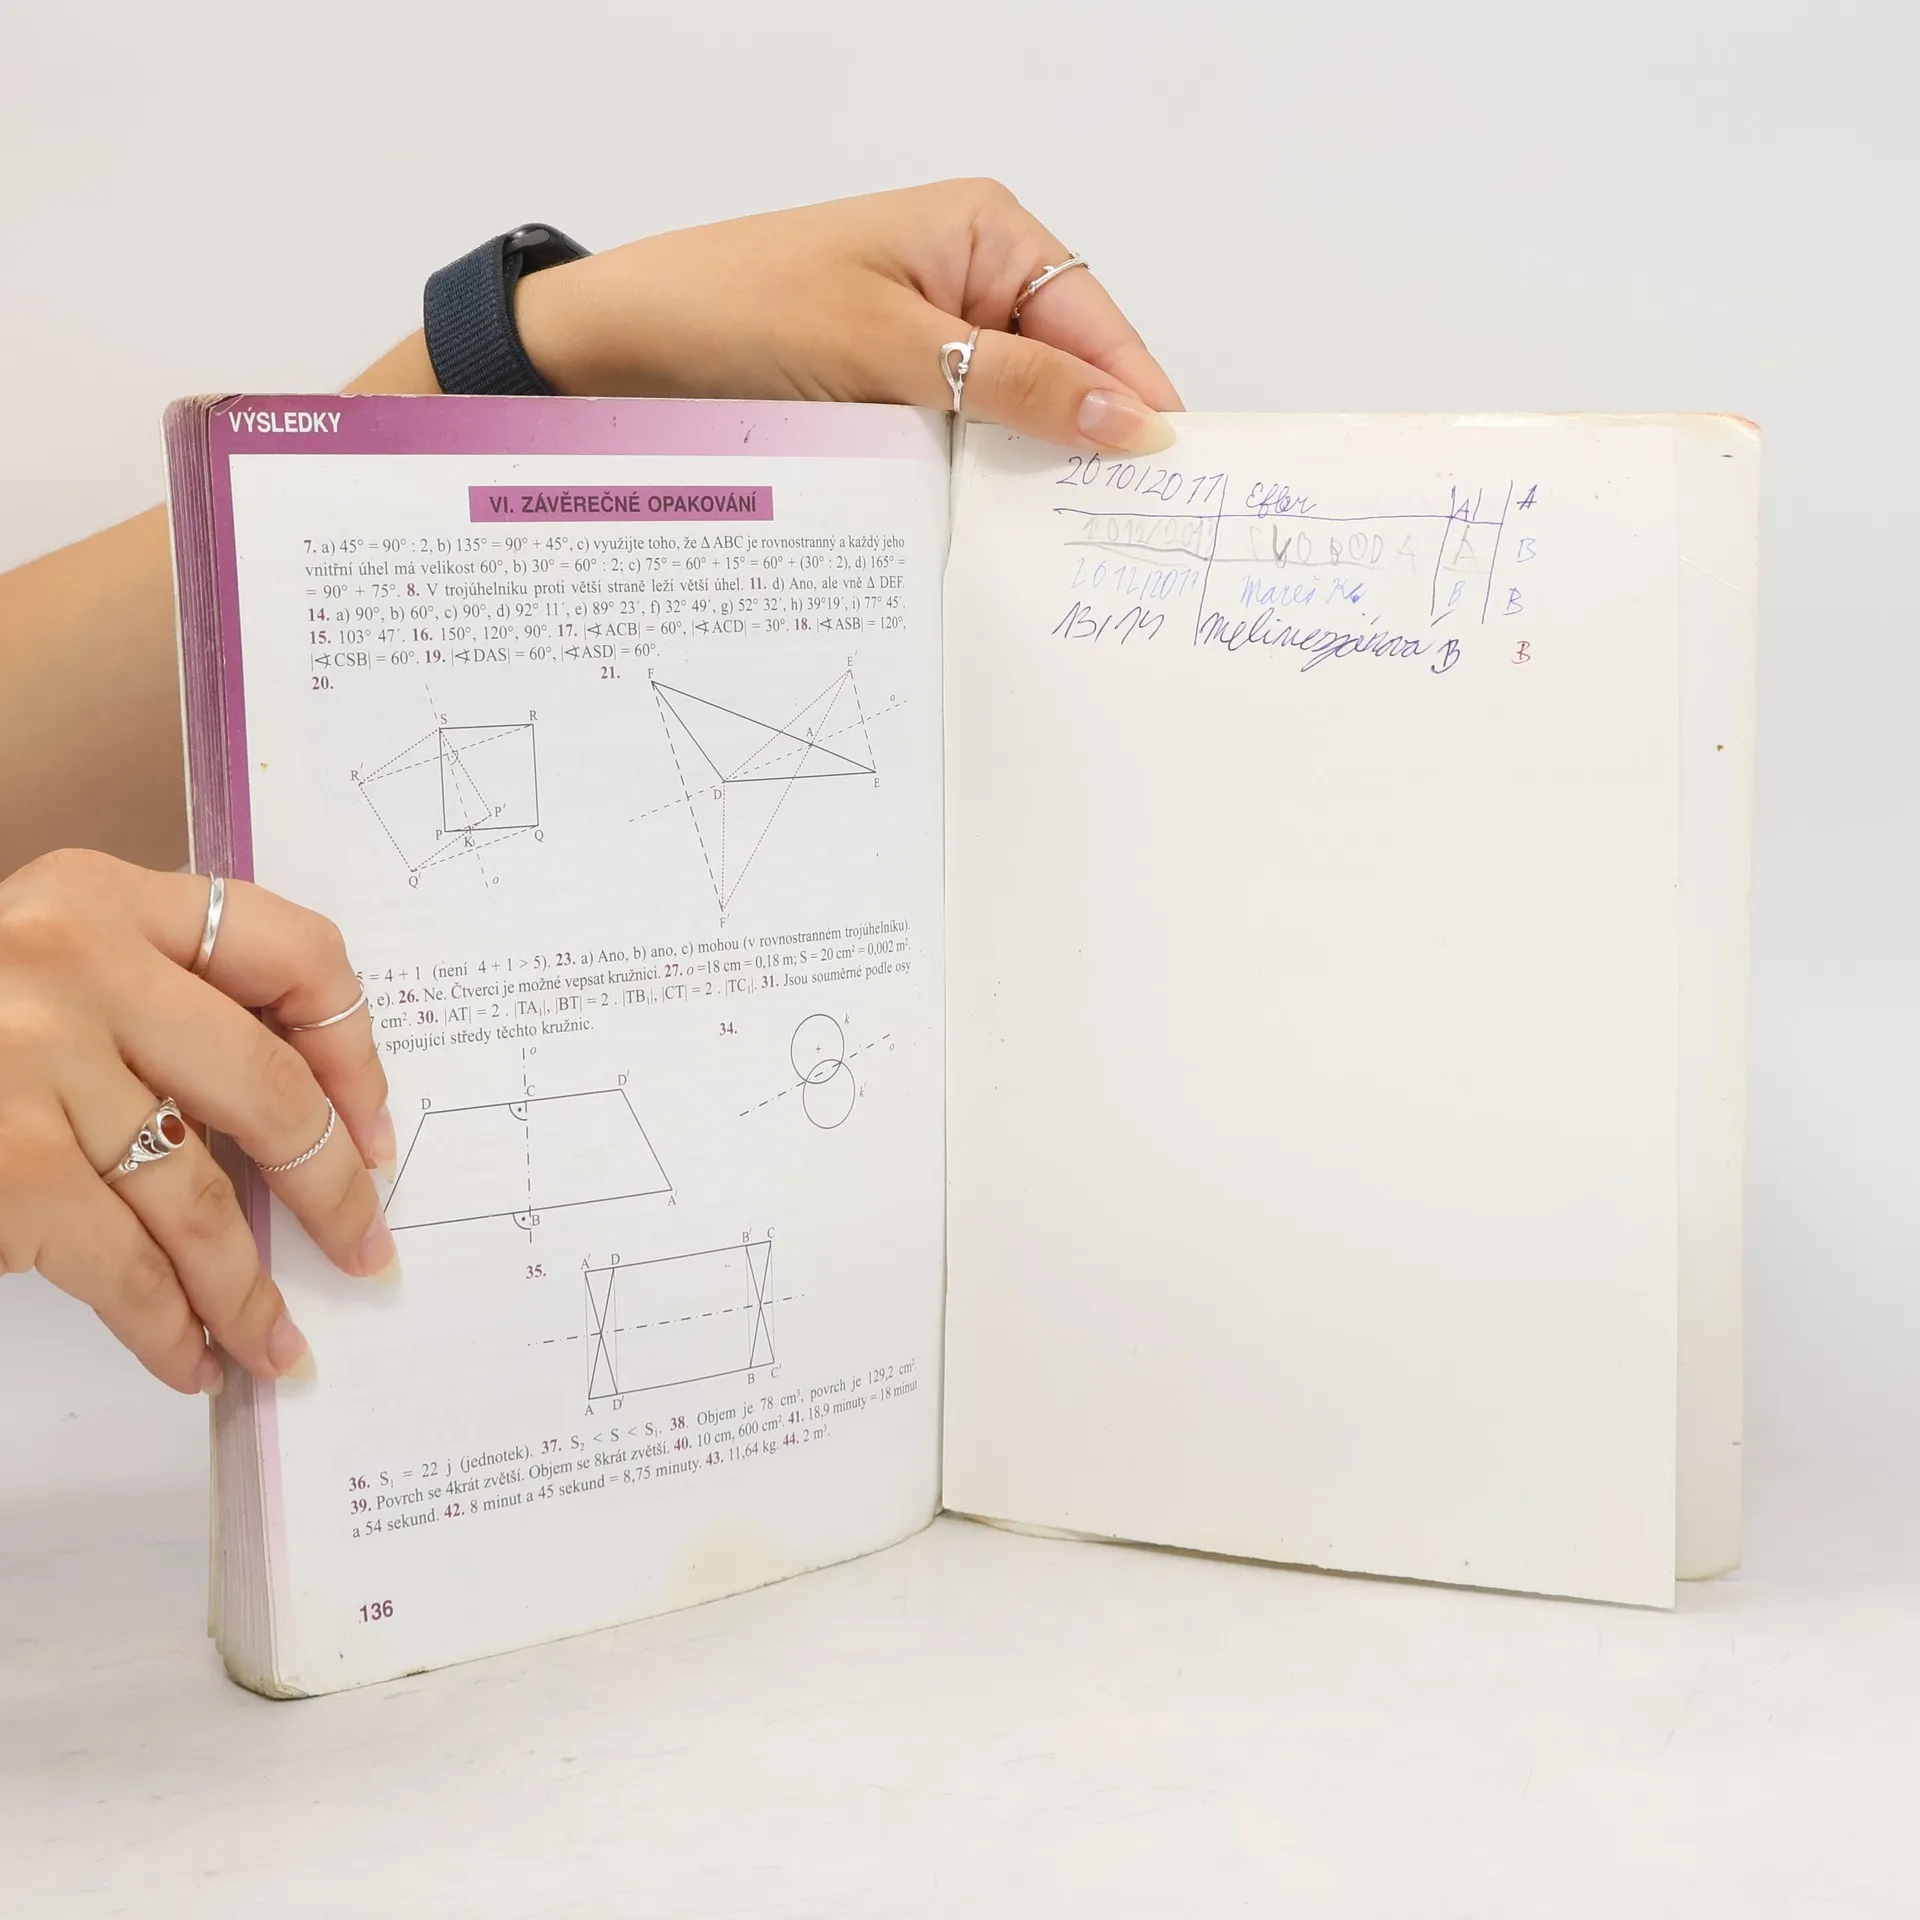 VÝSLEDKY
VI. ZÁVĚREČNÉ OPAKOVÁNÍ
7. a) 45° = 90° : 2, b) 135° = 90° + 45°, c) využijte toho, že Δ ABC je rovnostranný a každý jeho
vnitřní úhel má velikost 60°, b) 30° = 60° : 2; c) 75° = 60° + 15° = 60° + (30° : 2), d) 165° =
= 90° + 75°. 8. V trojúhelníku proti větší straně leží větší úhel. 11. d) Ano, ale vně Δ DEF.
14. a) 90°, b) 60°, c) 90°, d) 92° 11´, e) 89° 23´, f) 32° 49´, g) 52° 32´, h) 39°19´, i) 77° 45´.
15. 103° 47´. 16. 150°, 120°, 90°. 17. |∢ACB| = 60°, |∢ACD| = 30°. 18. |∢ASB| = 120°,
|∢CSB| = 60°. 19. |∢DAS| = 60°, |∢ASD| = 60°.
20.
S R R' P' P K Q Q' o
21.
F E' o A D E F'
5 = 4 + 1 (není 4 + 1 > 5). 23. a) Ano, b) ano, c) mohou (v rovnostranném trojúhelníku).
, e). 26. Ne. Čtverci je možné vepsat kružnici. 27. o =18 cm = 0,18 m; S = 20 cm² = 0,002 m².
cm². 30. |AT| = 2 . |TA₁|, |BT| = 2 . |TB₁|, |CT| = 2 . |TC₁|. 31. Jsou souměrné podle osy
spojující středy těchto kružnic.
o D C D' B A'
34.
k o k'
35.
A' D B' C A D' B C'
36. S₁ = 22 j (jednotek). 37. S₂ < S < S₁. 38. Objem je 78 cm³, povrch je 129,2 cm².
39. Povrch se 4krát zvětší. Objem se 8krát zvětší. 40. 10 cm, 600 cm². 41. 18,9 minuty = 18 minut
a 54 sekund. 42. 8 minut a 45 sekund = 8,75 minuty. 43. 11,64 kg. 44. 2 m³.
136
2010/2011 A A
SVOBODA A B
2012/2011 Mareš B B
13/14 B B